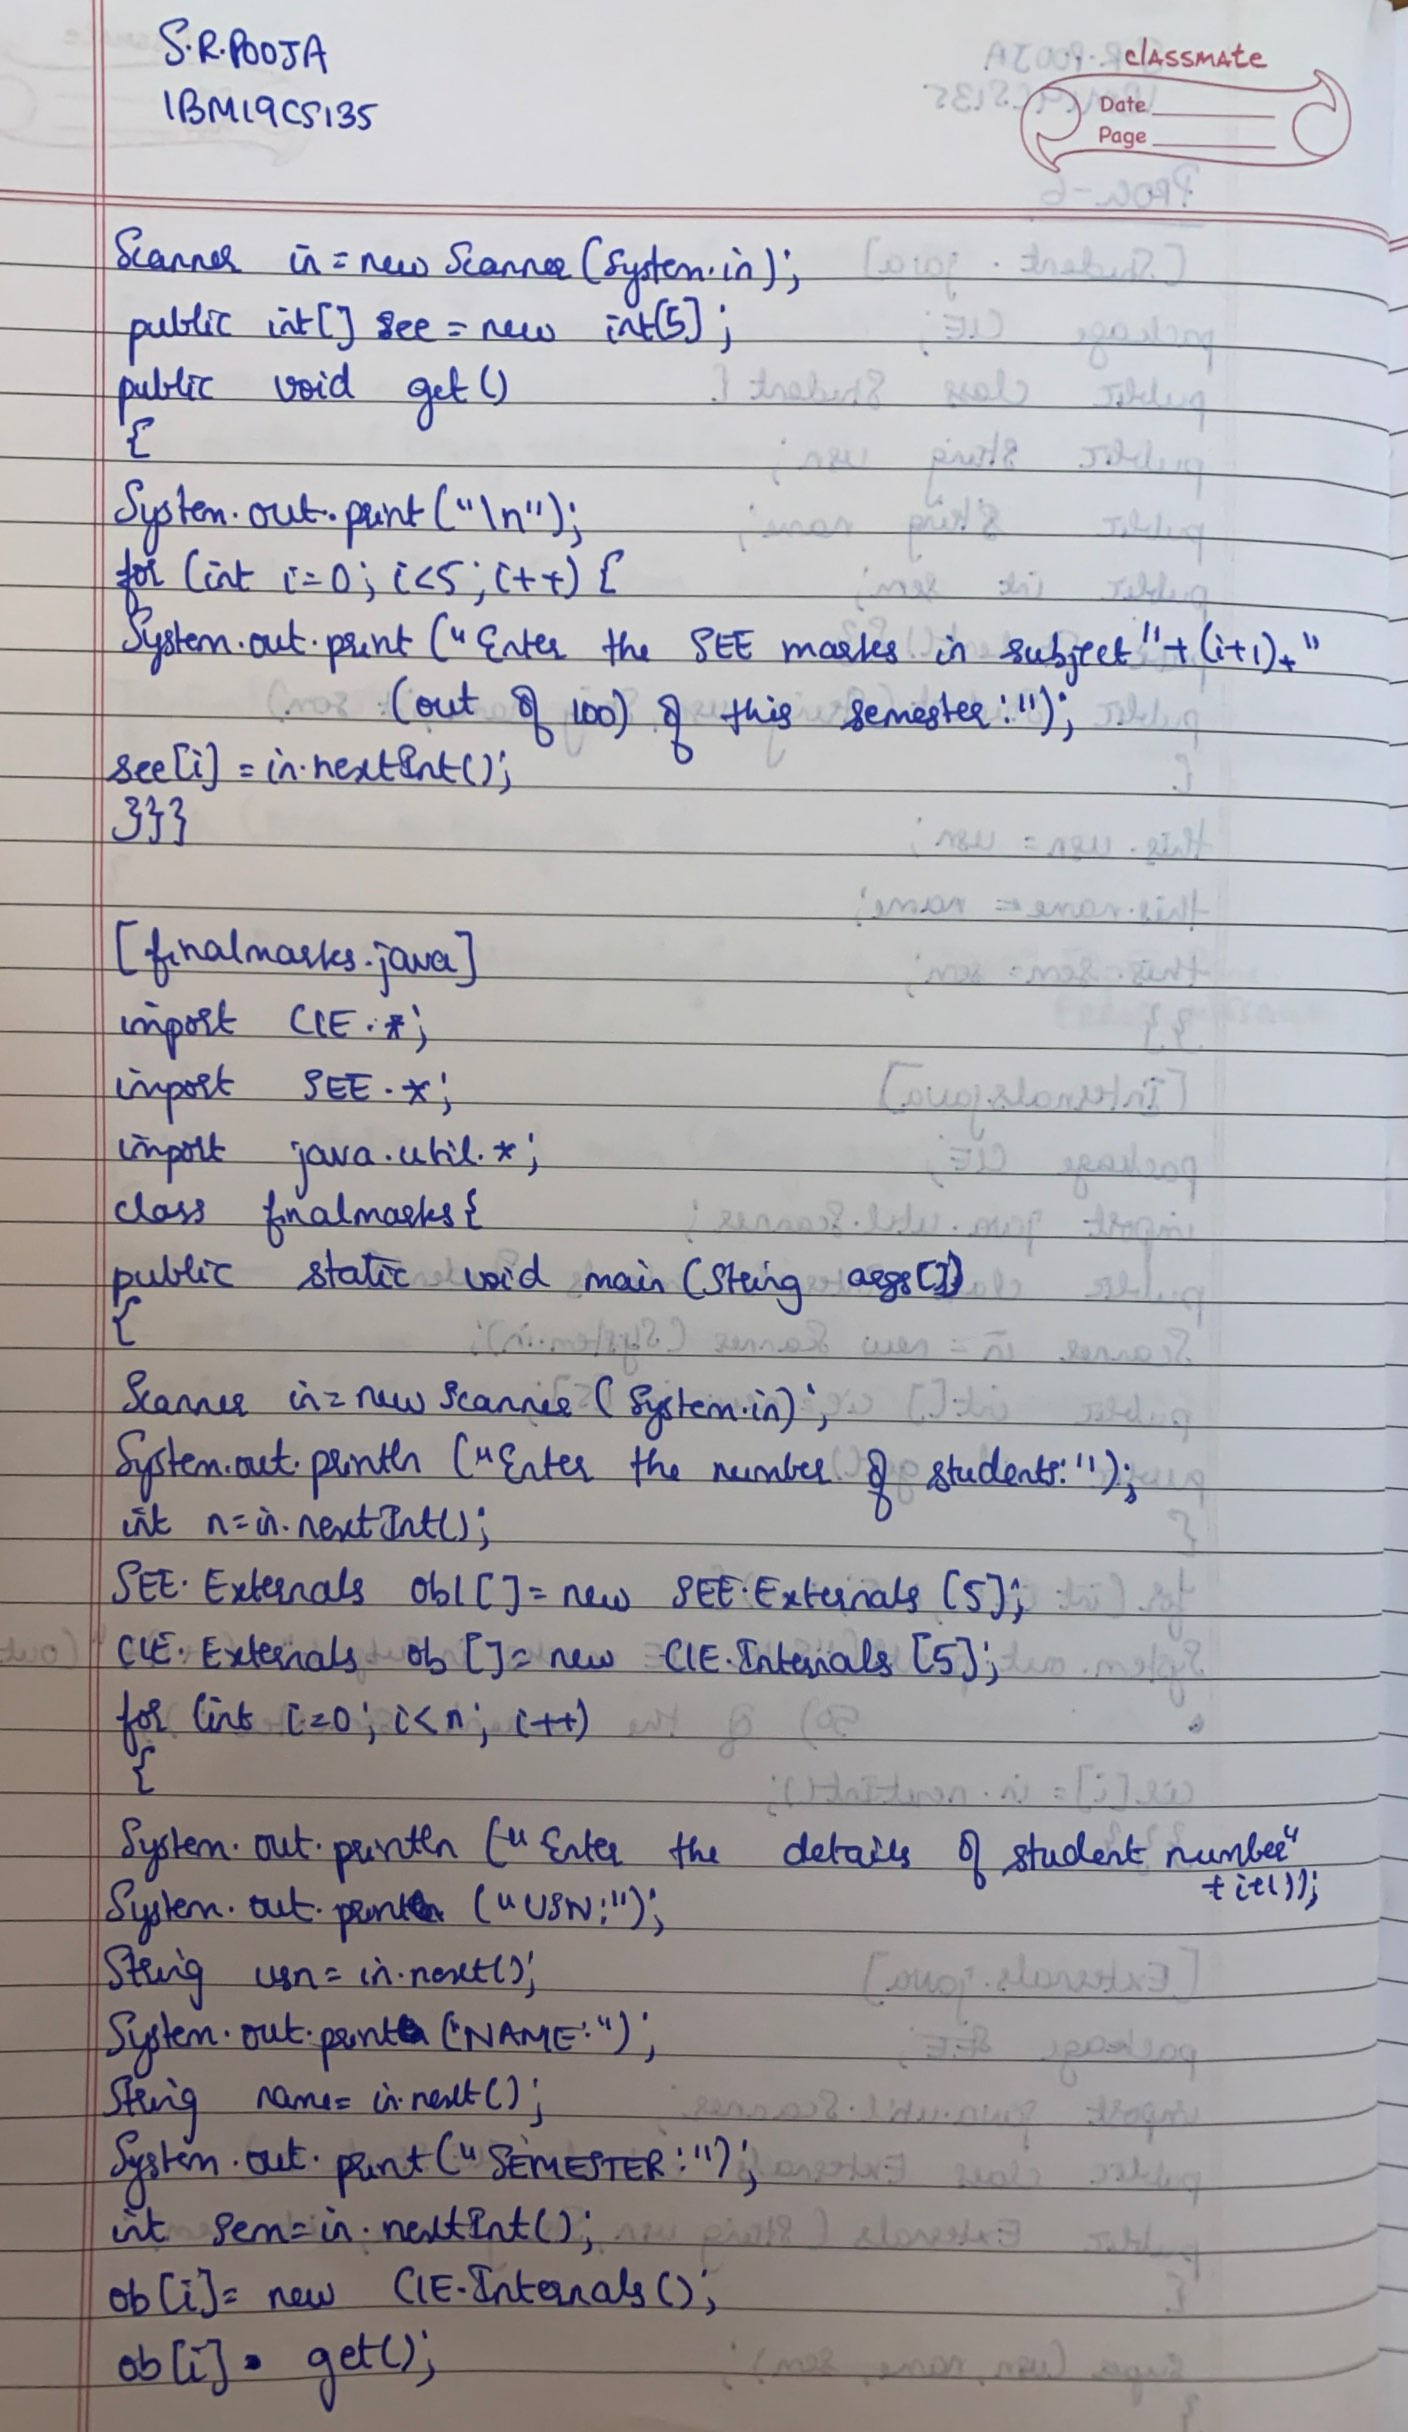 S.R.POOJA
1BM19CS135
classmate
Date
Page
Scanner in = new Scanner(System.in);
public int[] see = new int[5];
public void get()
{
System.out.print("\n");
for (int i=0; i<5; i++) {
System.out.print ("Enter the SEE marks in subject"+(i+1)+"
(out of 100) of this semester:");
see[i] = in.nextInt();
}}}
[finalmarks.java]
import CIE.*;
import SEE.*;
import java.util.*;
class finalmarks{
public static void main (String args[])
{
Scanner in = new Scanner (System.in);
System.out.println ("Enter the number of students:");
int n=in.nextInt();
SEE.Externals ob1[]= new SEE.Externals [5];
CIE.Externals ob[]= new CIE.Internals [5];
for (int i=0; i<n; i++)
{
System.out.println ("Enter the details of student number"
+ i+1));
System.out.print ("USN:");
String usn= in.next();
System.out.print ("NAME:");
String name= in.next();
System.out.print("SEMESTER:");
int sem=in.nextInt();
ob[i]= new CIE.Internals();
ob[i].get();